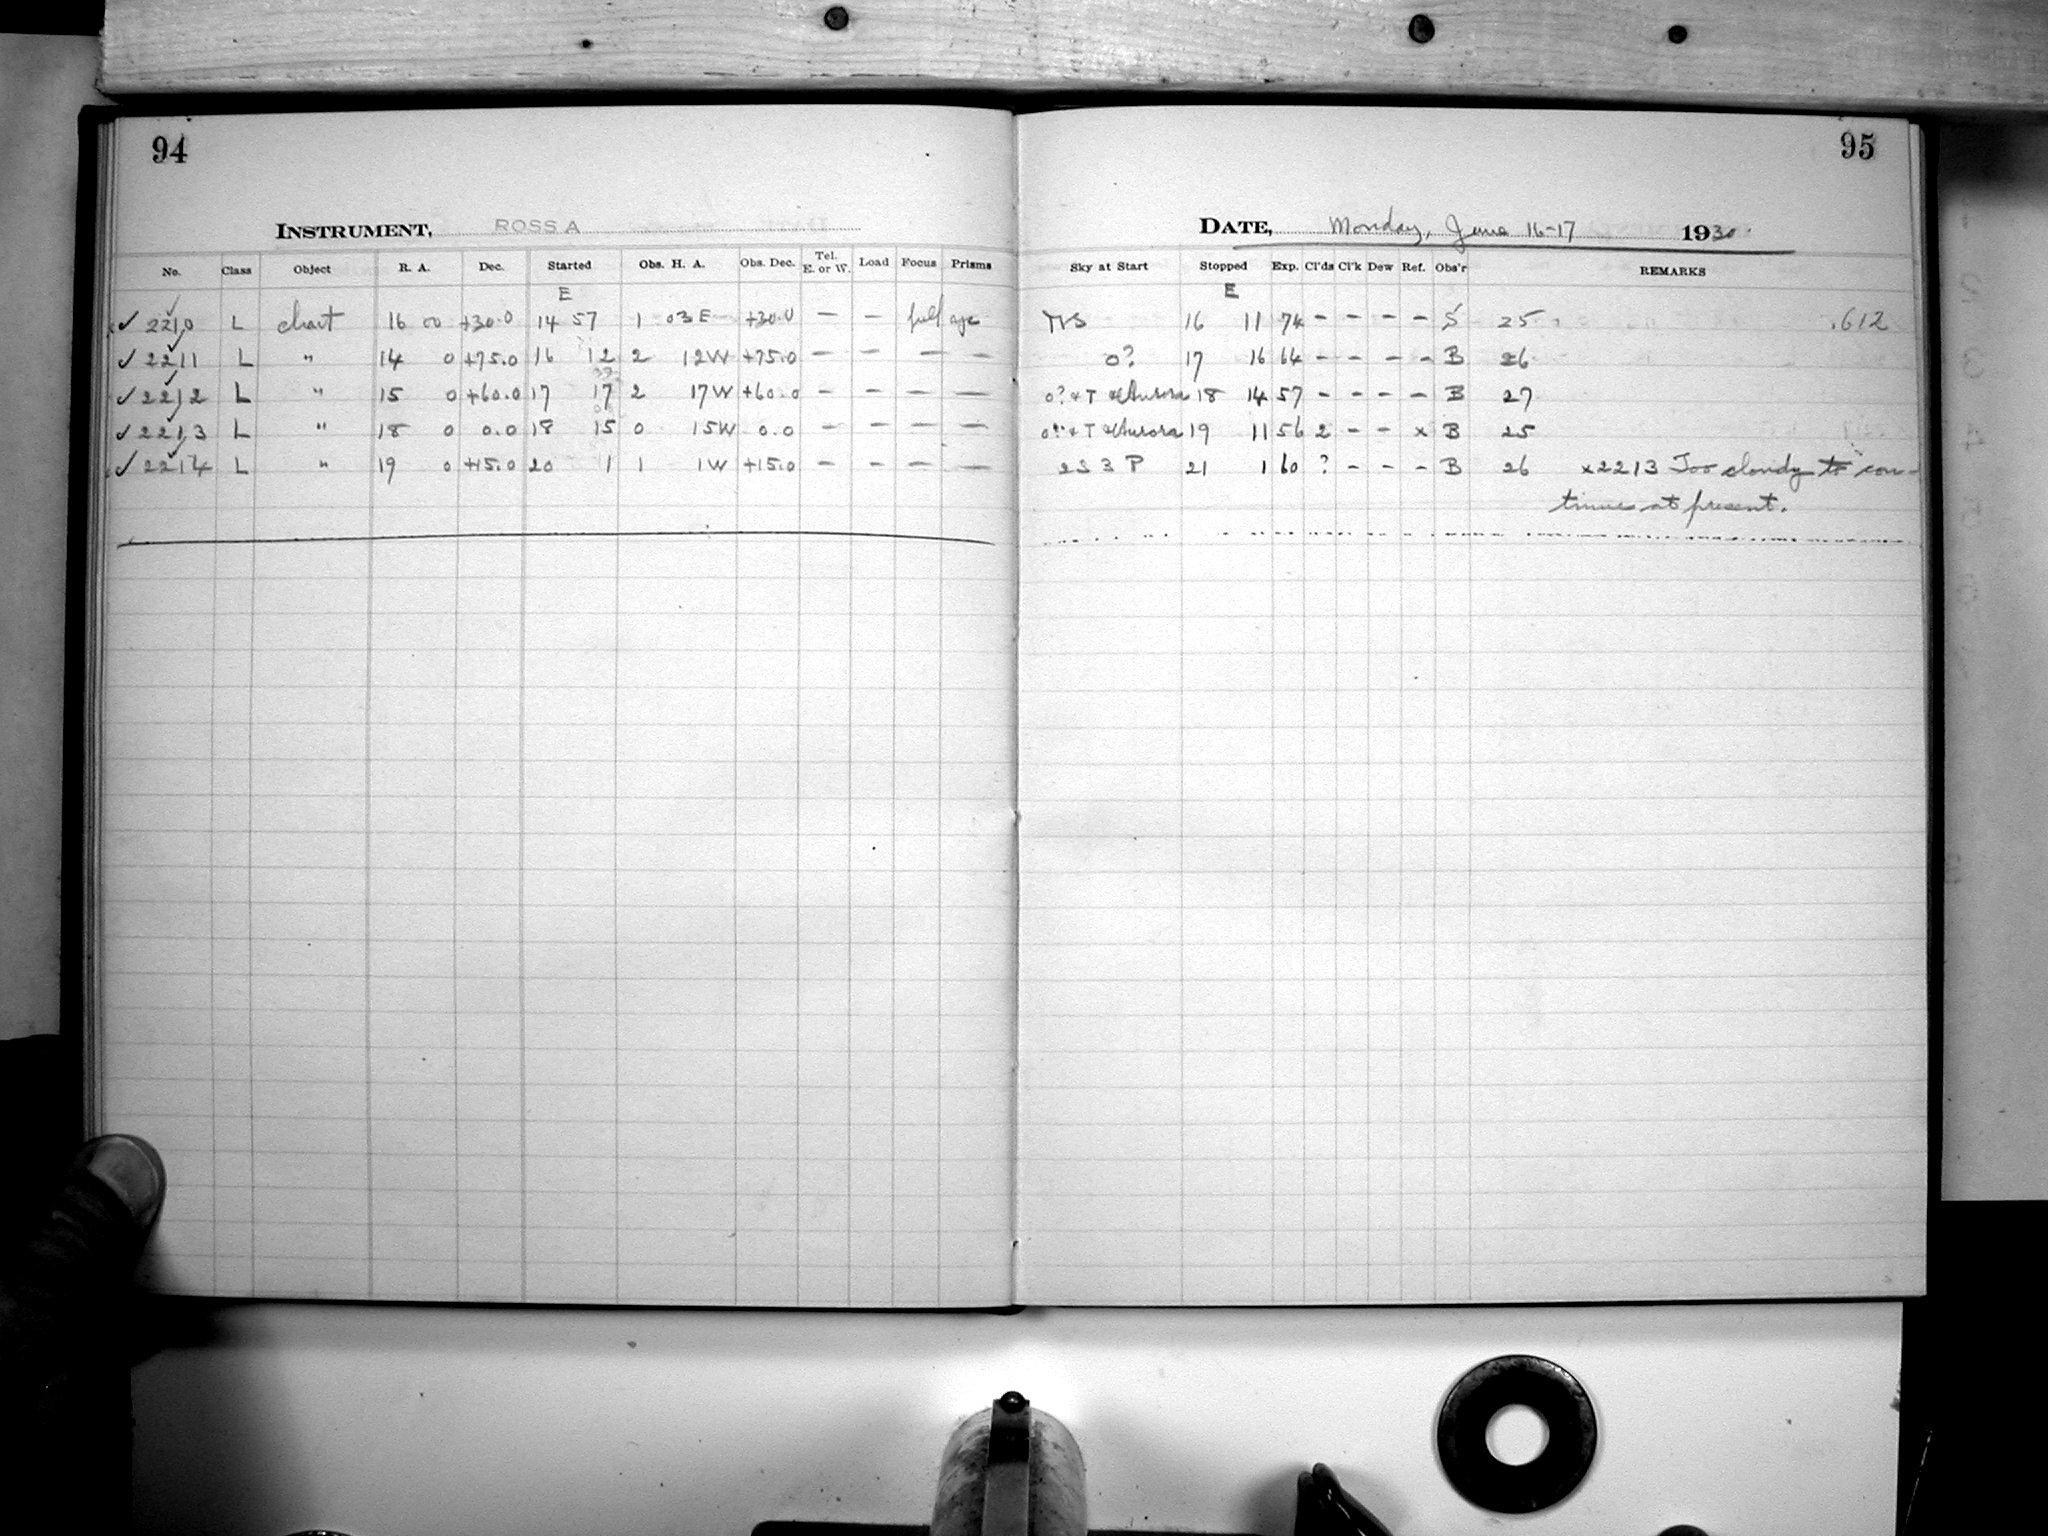 94
INSTRUMENT, ROSS A
No. Class Object R. A. Dec. Started Obs. H. A. Obs. Dec. Tel. E. or W. Load Focus Prisms
E
✓ 2210 L chart 16 00 +30.0 14 57 1 03 E +30.0 – – full ape
✓ 2211 L " 14 0 +75.0 16 12 2 12W +75.0 – – – –
✓ 2212 L " 15 0 +60.0 17 17 2 17W +60.0 – – – –
✓ 2213 L " 18 0 0.0 18 15 0 15W 0.0 – – – –
✓ 2214 L " 19 0 +15.0 20 1 1 1W +15.0 – – – –
95
DATE, Monday, June 16-17 1930.
Sky at Start Stopped Exp. Cl'ds Cl'k Dew Ref. Obs'r REMARKS
E
16 11 74 – – – – S 25 .612
0? 17 16 64 – – – – B 26
0? + T & Aurora 18 14 57 – – – – B 27
+ T & Aurora 19 11 56 2 – – x B 25
2S 3 P 21 1 60 ? – – – B 26 x2213 Too cloudy to con-
tinue at present.